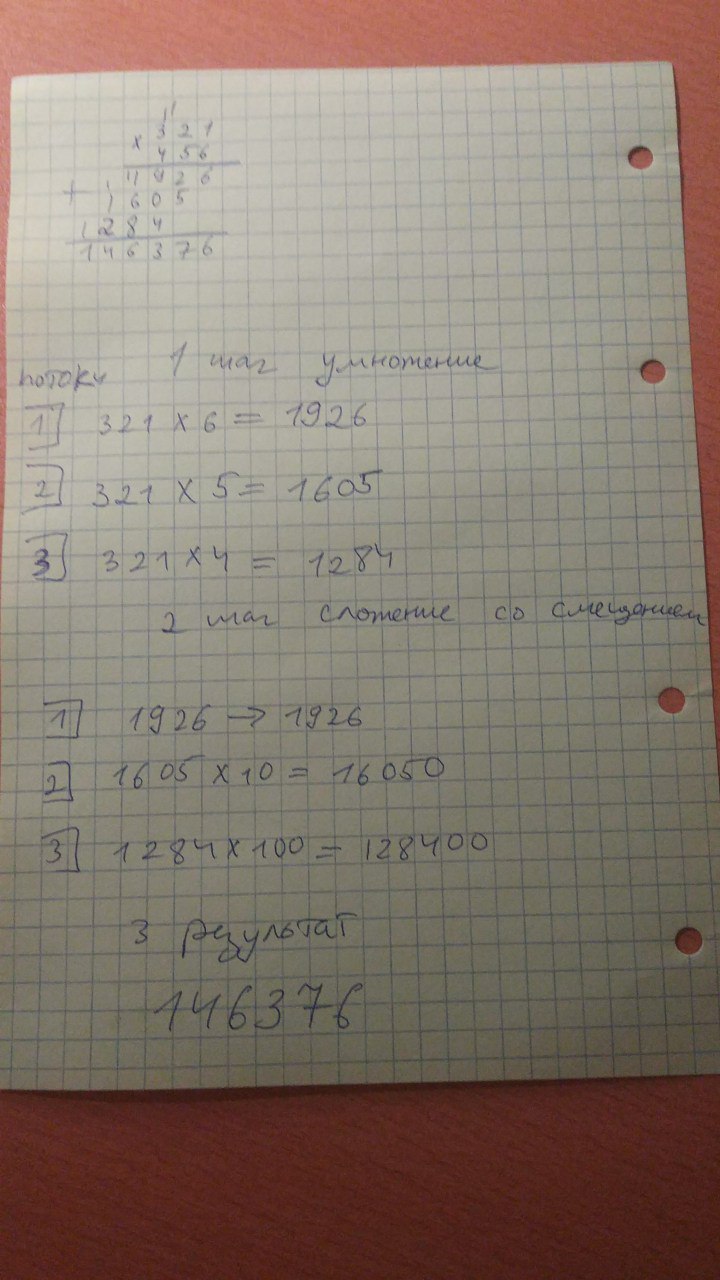 11
× 321
456
1926
+ 1605
1284
146376
1 шаг умножение
потоки
1 321 × 6 = 1926
2 321 × 5 = 1605
3 321 × 4 = 1284
2 шаг сложение со смещением
1 1926 → 1926
2 1605 × 10 = 16050
3 1284 × 100 = 128400
3 результат
146376